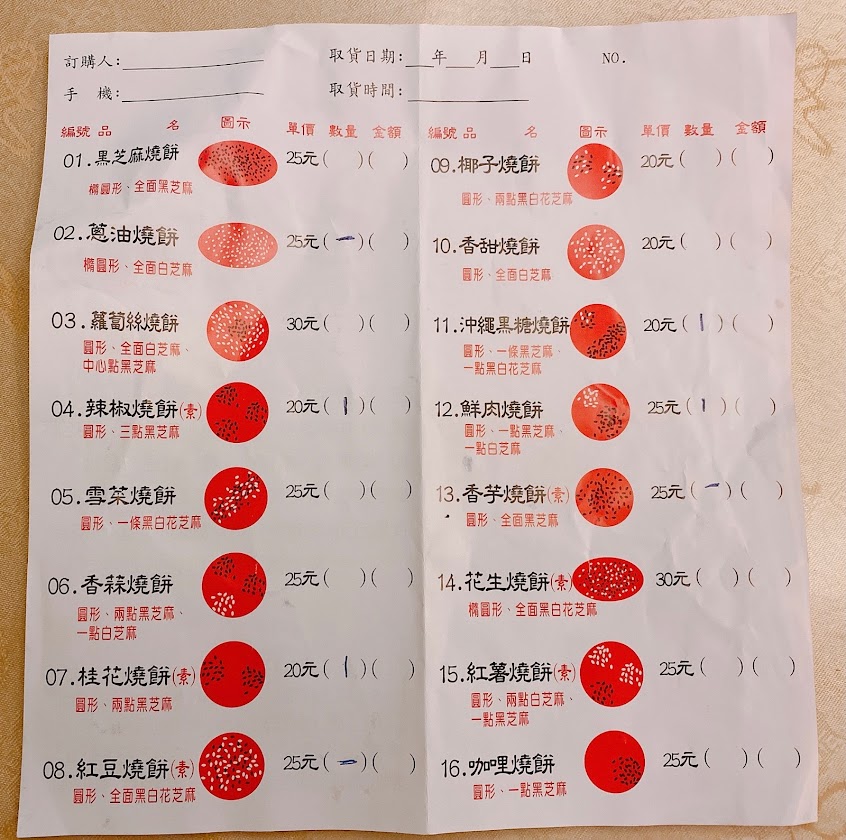 訂購人:
取貨日期: 年 月 日
NO.
手 機:
取貨時間:
編號 品 名 圖示 單價 數量 金額
01.黑芝麻燒餅 25元( )( )
橢圓形、全面黑芝麻
02.蔥油燒餅 25元(一)( )
橢圓形、全面白芝麻
03.蘿蔔絲燒餅 30元( )( )
圓形、全面白芝麻、
中心點黑芝麻
04.辣椒燒餅(素) 20元(|)( )
圓形、三點黑芝麻
05.雪菜燒餅 25元( )( )
圓形、一條黑白花芝麻
06.香蒜燒餅 25元( )( )
圓形、兩點黑芝麻、
一點白芝麻
07.桂花燒餅(素) 20元(|)( )
圓形、兩點黑芝麻
08.紅豆燒餅(素) 25元(一)( )
圓形、全面黑白花芝麻
編號 品 名 圖示 單價 數量 金額
09.椰子燒餅 20元( )( )
圓形、兩點黑白花芝麻
10.香甜燒餅 20元( )( )
圓形、全面白芝麻
11.沖繩黑糖燒餅 20元(|)( )
圓形、一條黑芝麻、
一點黑白花芝麻
12.鮮肉燒餅 25元(|)( )
圓形、一點黑芝麻、
一點白芝麻
13.香芋燒餅(素) 25元(一)( )
圓形、全面黑芝麻
14.花生燒餅(素) 30元( )( )
橢圓形、全面黑白花芝麻
15.紅薯燒餅(素) 25元( )( )
圓形、兩點白芝麻、
一點黑芝麻
16.咖哩燒餅 25元( )( )
圓形、一點黑芝麻